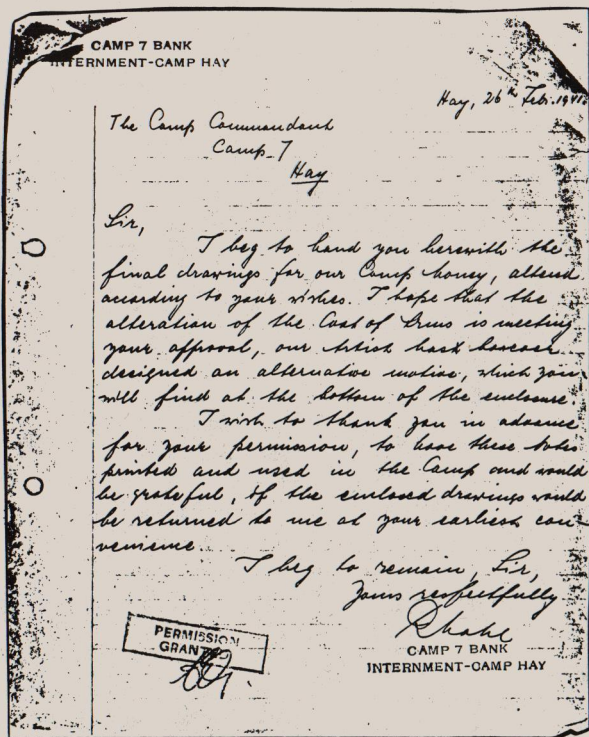 CAMP 7 BANK
INTERNMENT-CAMP HAY
Hay, 26th Feb. 1941.
The Camp Commandant
Camp 7
Hay
Sir,
I beg to hand you herewith the
final drawings for our Camp money, altered
according to your wishes. I hope that the
alteration of the Coat of Arms is meeting
your approval, our Artist has however
designed an alternative motive, which you
will find at the bottom of the enclosure.
I wish to thank you in advance
for your permission, to have these Notes
printed and used in the Camp and would
be grateful, if the enclosed drawings would
be returned to me at your earliest con-
venience
I beg to remain, Sir,
Yours respectfully
CAMP 7 BANK
INTERNMENT-CAMP HAY
PERMISSION
GRANTED